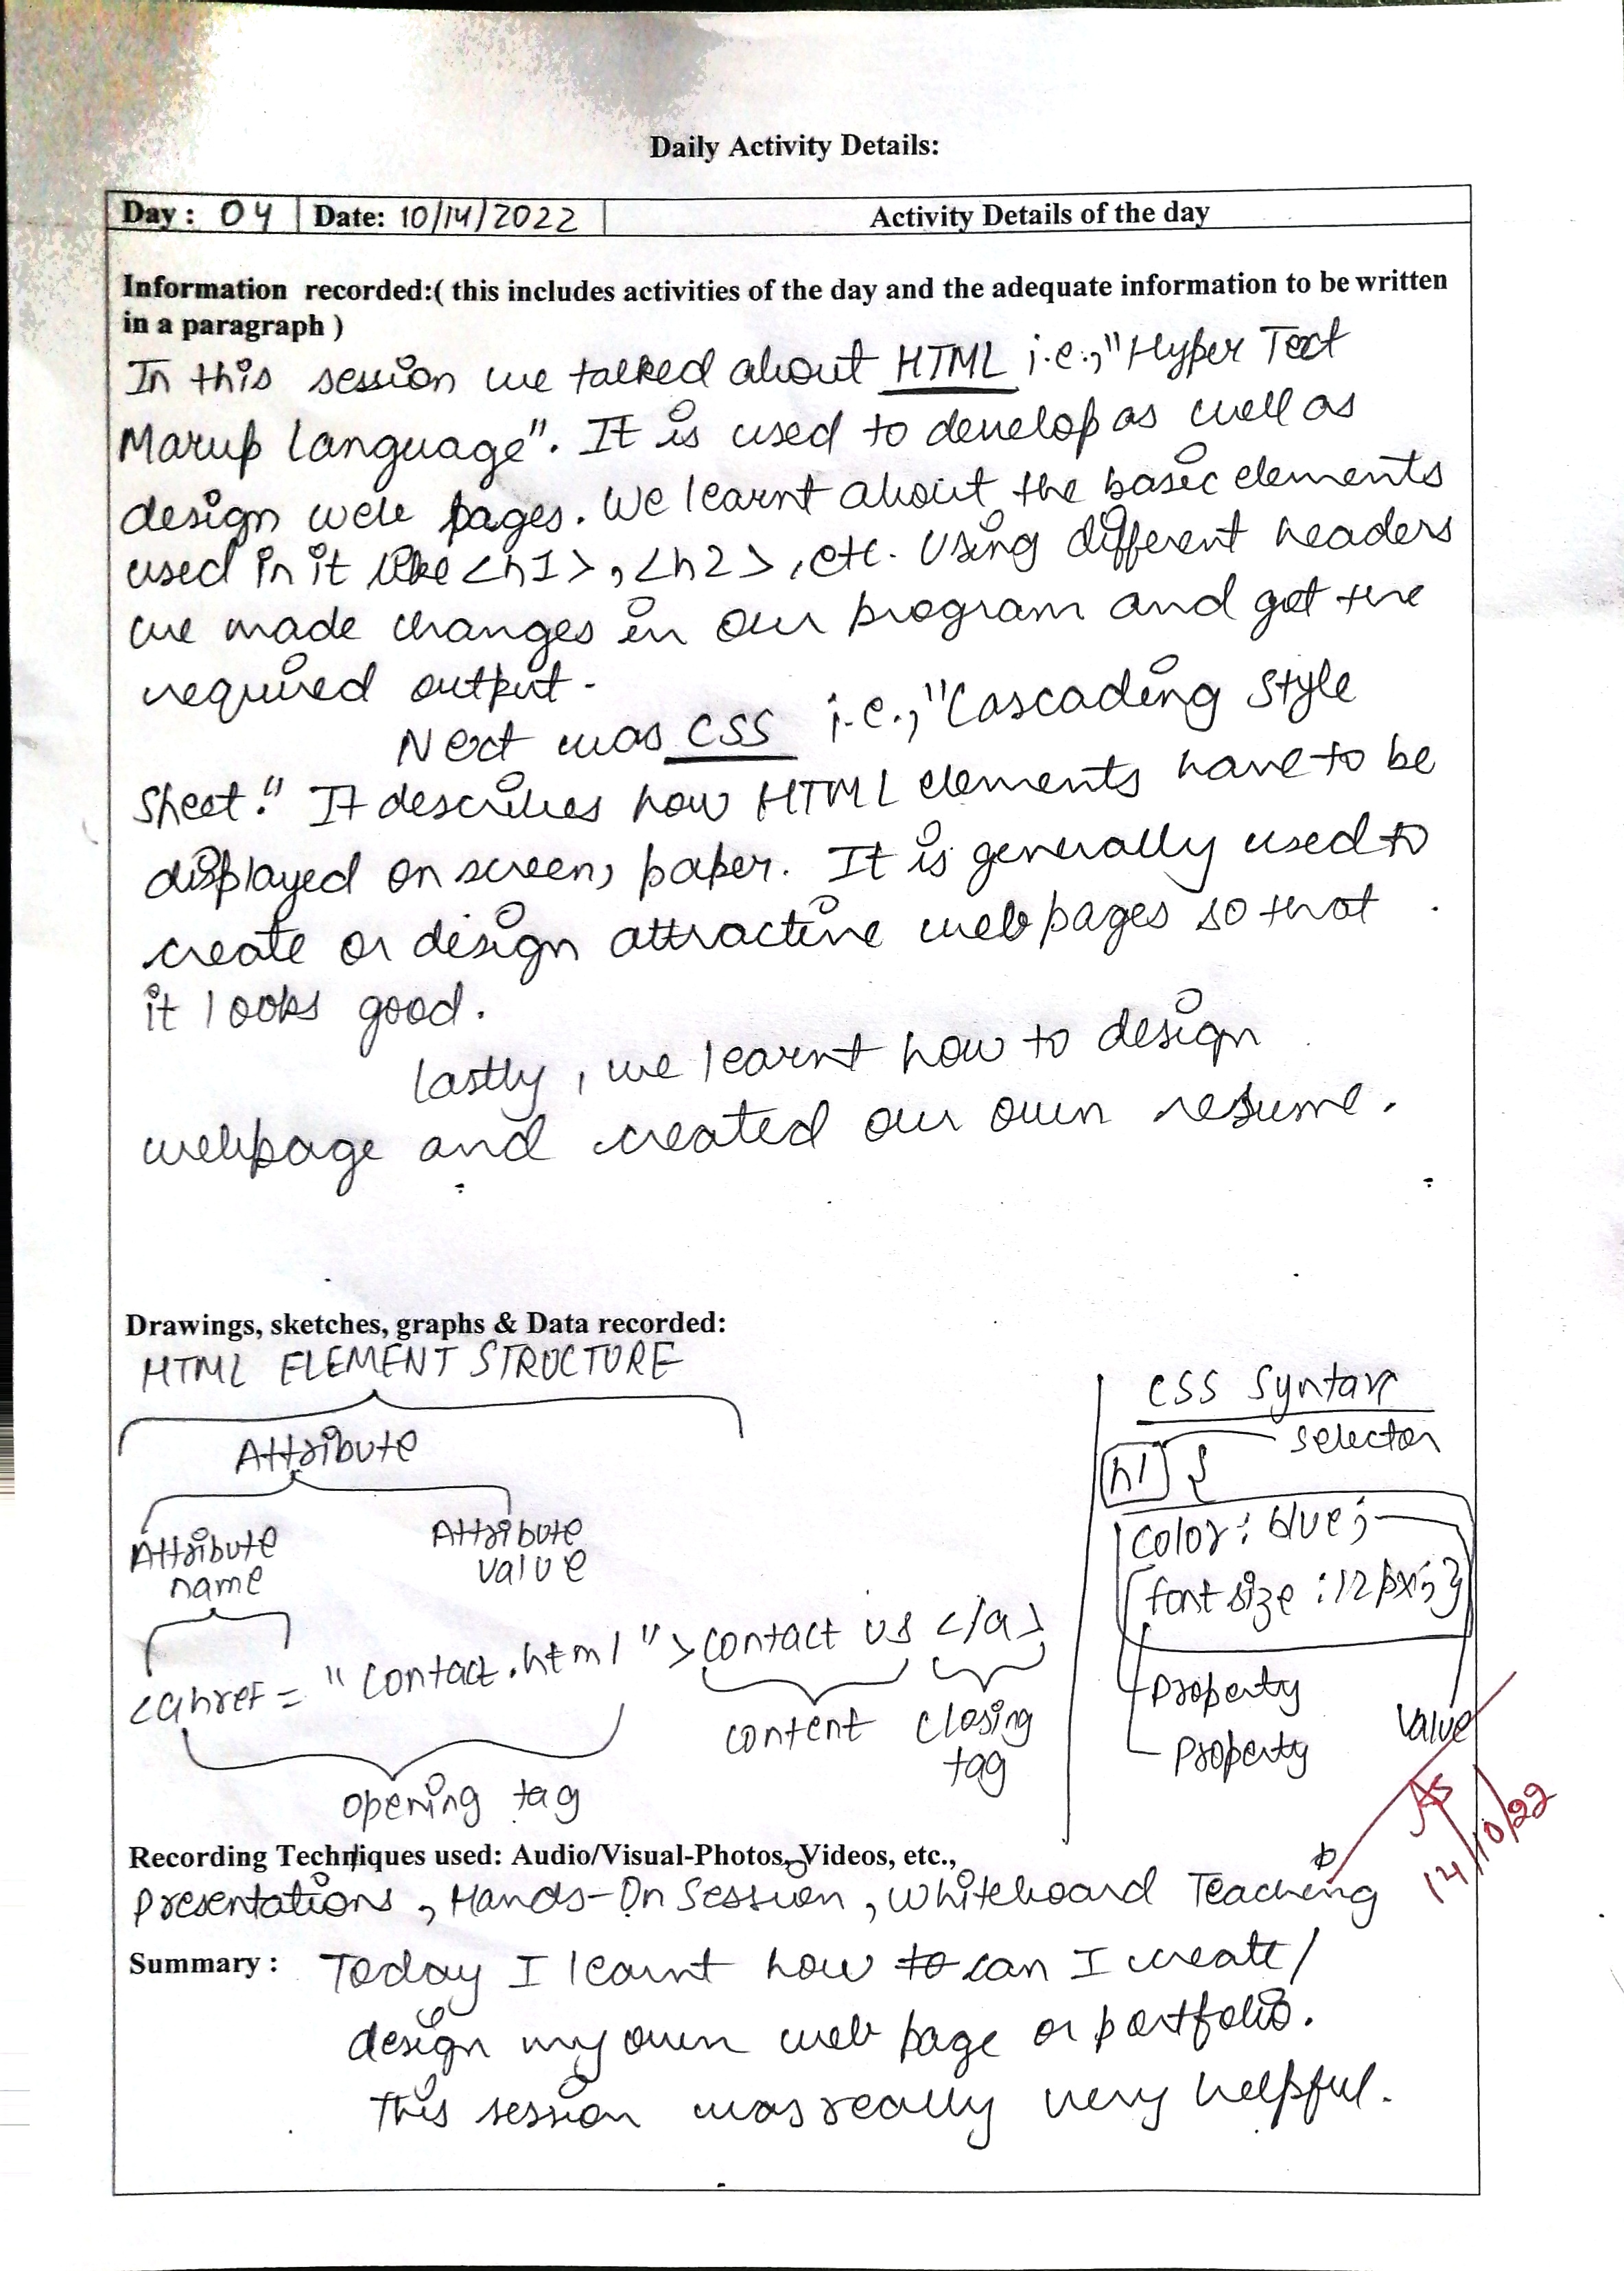 Daily Activity Details:
Day : 04 Date: 10/14/2022 Activity Details of the day
Information recorded:( this includes activities of the day and the adequate information to be written
in a paragraph )
In this session we talked about HTML i.e.,"Hyper Text
Marup Language". It is used to develop as well as
design web pages. We learnt about the basic elements
used in it like <h1>, <h2>, etc. Using different headers
we made changes in our program and got the
required output.
Next was CSS i.e.,"Cascading Style
Sheet." It describes how HTML elements have to be
displayed on screen, paper. It is generally used to
create or design attractive web pages so that
it looks good.
Lastly, we learnt how to design
webpage and created our own resume.
Drawings, sketches, graphs & Data recorded:
HTML ELEMENT STRUCTURE
Attribute
Attribute name
Attribute value
<a href = "contact.html"> contact us </a>
content
closing tag
opening tag
CSS Syntax
selector
h1 {
color: blue;
font size : 12px; }
property
property
value
AS
14/10/22
Recording Techniques used: Audio/Visual-Photos, Videos, etc.,
Presentations, Hands-On Session, Whiteboard Teaching
Summary : Today I learnt how to can I create/
design my own web page or portfolio.
This session was really very helpful.